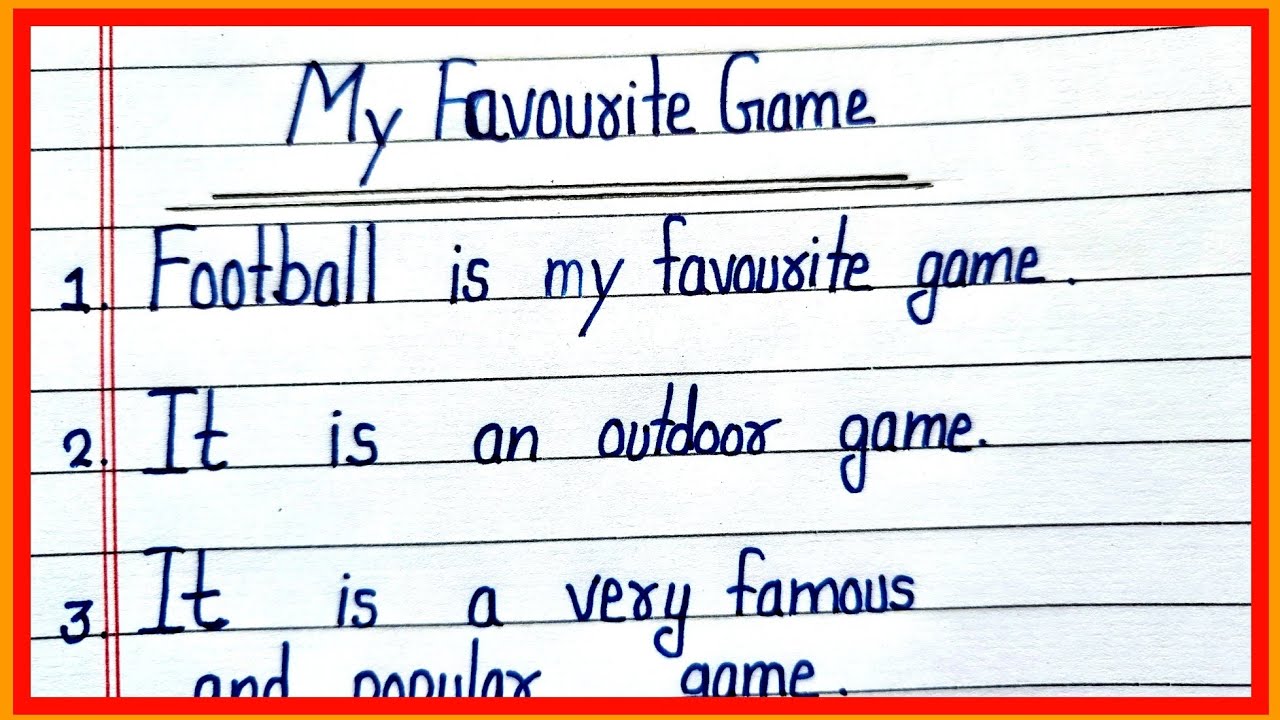 My Favourite Game
1. Football is my favourite game.
2. It is an outdoor game.
3. It is a very famous
and popular game.